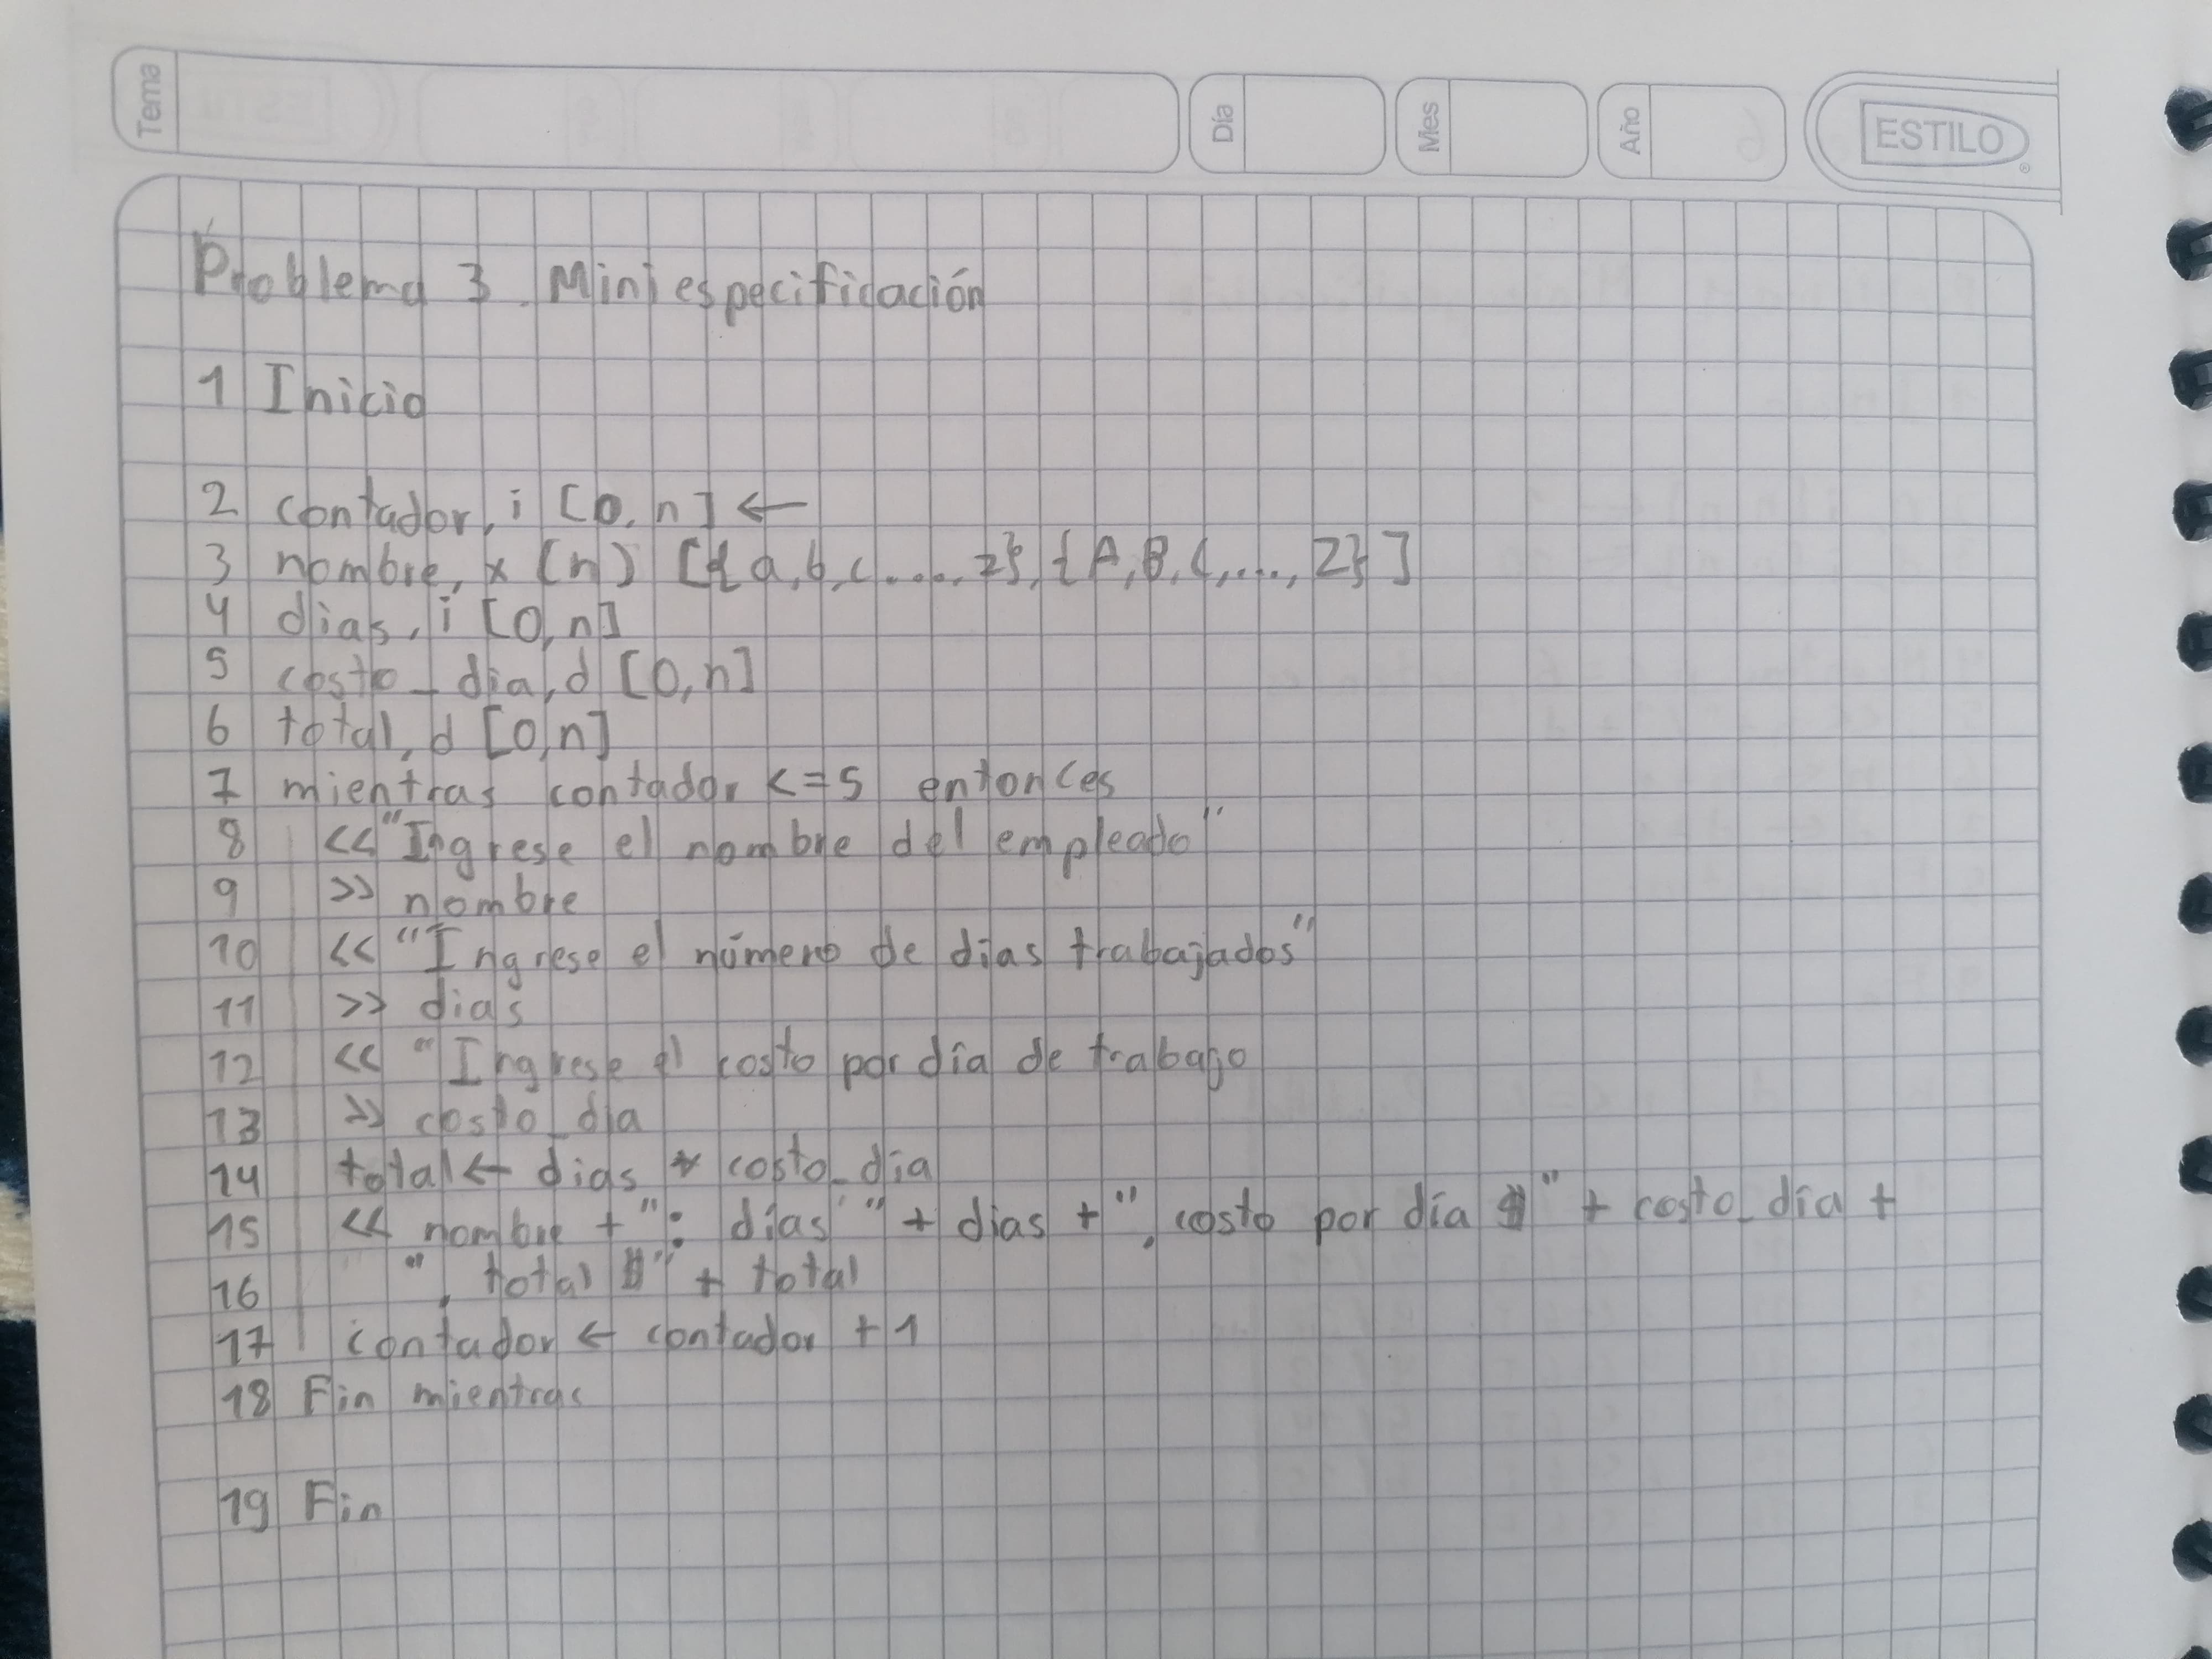 Tema
Día
Mes
Año
ESTILO
Problema 3. Miniespecificación
1 Inicio
2 contador, i [0, n] ←
3 nombre, x (n) [{a,b,c...., z}, {A,B,C,...., Z}]
4 dias, i [0, n]
5 costo_dia, d [0, n]
6 total, d [0, n]
7 mientras contador <= 5 entonces
8 << "Ingrese el nombre del empleado"
9 >> nombre
10 << "Ingrese el número de dias trabajados"
11 >> dias
12 << "Ingrese el costo por día de trabajo
13 >> costo_dia
14 total ← dias * costo_dia
15 << nombre + ": días " + dias + ", costo por día $" + costo_dia +
16 ", total $" + total
17 contador ← contador + 1
18 Fin mientras
19 Fin